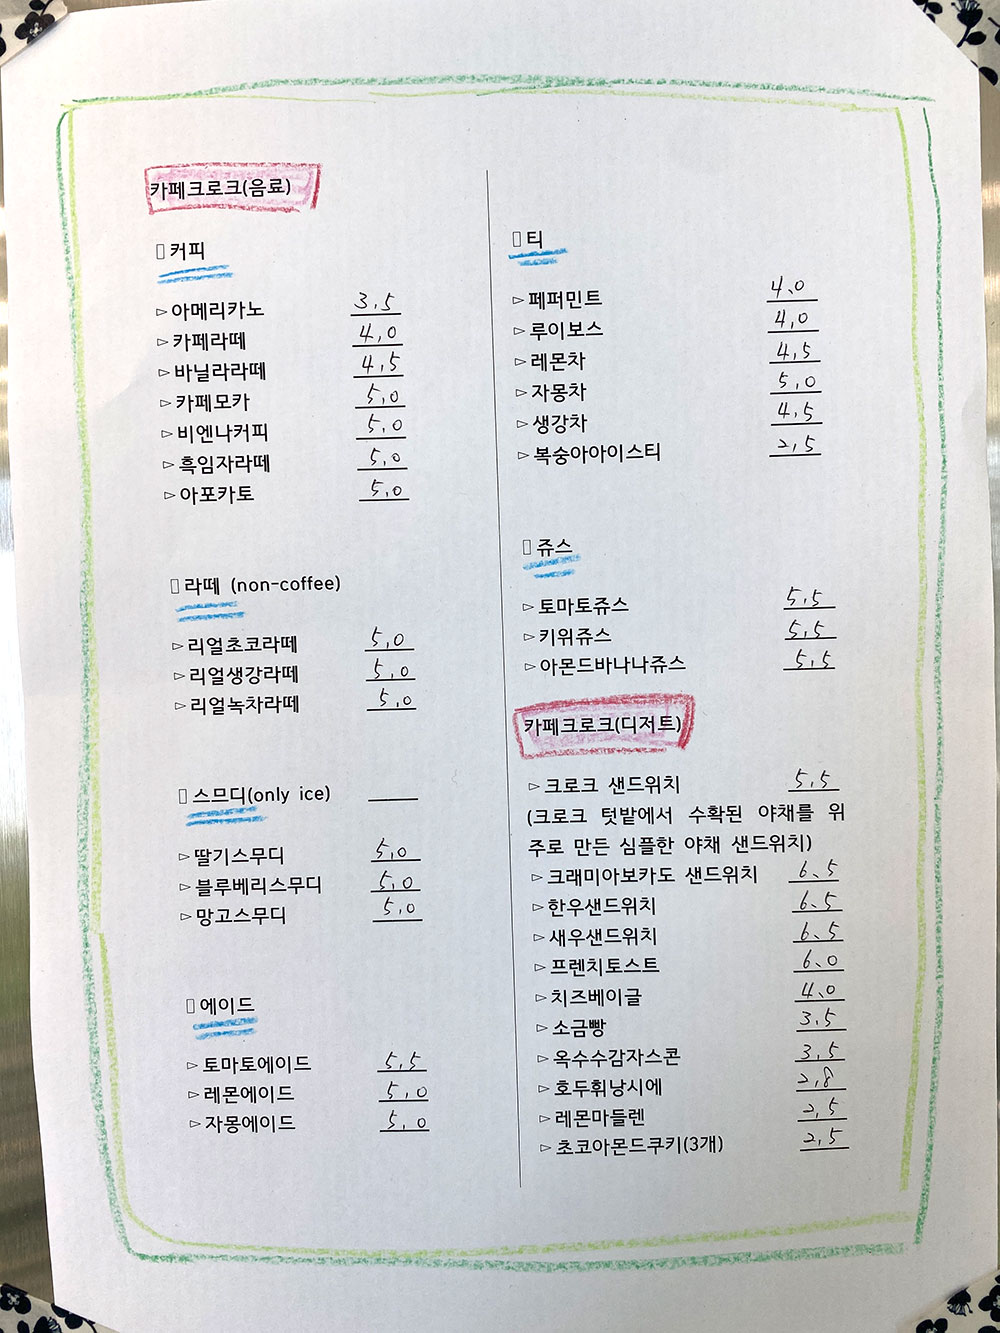 카페크로크(음료)
커피
▻아메리카노 3.5
▻카페라떼 4.0
▻바닐라라떼 4.5
▻카페모카 5.0
▻비엔나커피 5.0
▻흑임자라떼 5.0
▻아포카토 5.0
라떼 (non-coffee)
▻리얼초코라떼 5.0
▻리얼생강라떼 5.0
▻리얼녹차라떼 5.0
스므디(only ice)
▻딸기스무디 5.0
▻블루베리스무디 5.0
▻망고스무디 5.0
에이드
▻토마토에이드 5.5
▻레몬에이드 5.0
▻자몽에이드 5.0
티
▻페퍼민트 4.0
▻루이보스 4.0
▻레몬차 4.5
▻자몽차 5.0
▻생강차 4.5
▻복숭아아이스티 2.5
쥬스
▻토마토쥬스 5.5
▻키위쥬스 5.5
▻아몬드바나나쥬스 5.5
카페크로크(디저트)
▻크로크 샌드위치 5.5
(크로크 텃밭에서 수확된 야채를 위
주로 만든 심플한 야채 샌드위치)
▻크래미아보카도 샌드위치 6.5
▻한우샌드위치 6.5
▻새우샌드위치 6.5
▻프렌치토스트 6.0
▻치즈베이글 4.0
▻소금빵 3.5
▻옥수수감자스콘 3.5
▻호두휘낭시에 2.8
▻레몬마들렌 2.5
▻초코아몬드쿠키(3개) 2.5